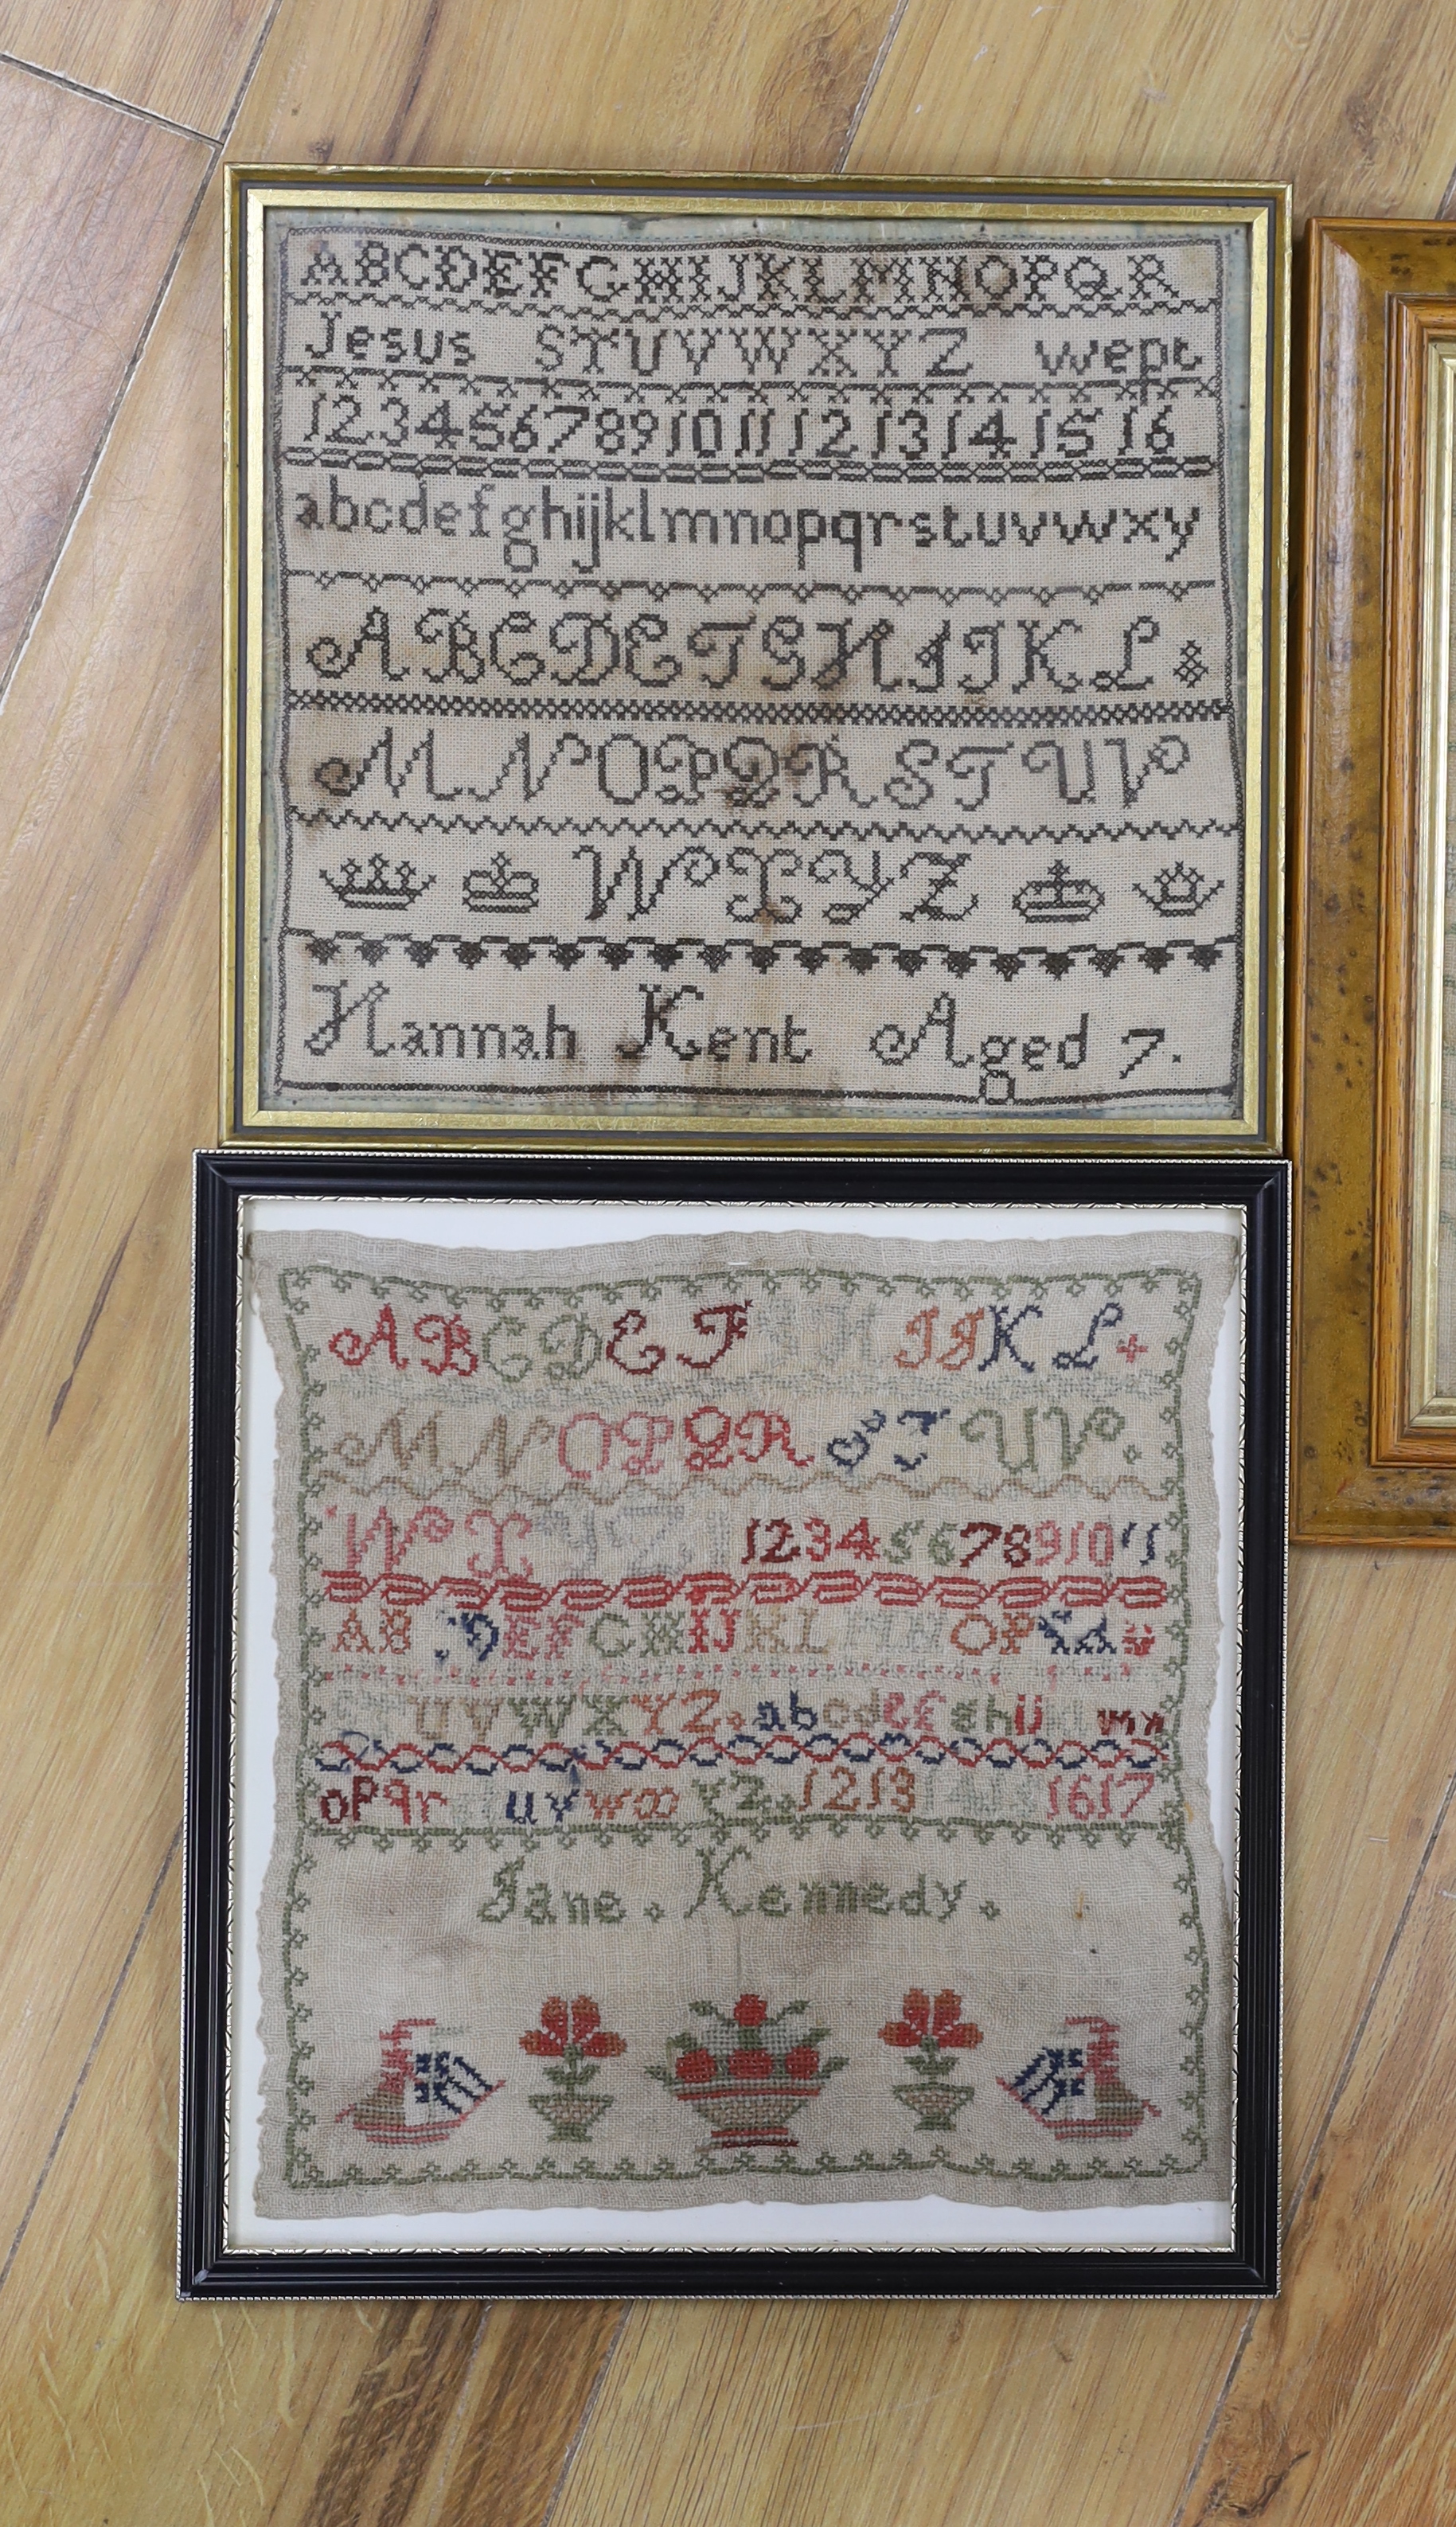 ABCDEFGHIJKLMNOPQR
Jesus STUVWXYZ wept
12345678910 11 12 13 14 15 16
abcdefghijklmnopqrstuvwxy
ABCDEFGHIJKL
MNOPQRSTUV
WXYZ
Hannah Kent Aged 7.
ABCDEF IJKL
MNOPQRSTUV
WX 1234567891011
AB DEFGHIJKLMNOP
UVWXYZ abcdef hi mn
opqr uvw yz 1213 1617
Jane. Kennedy.